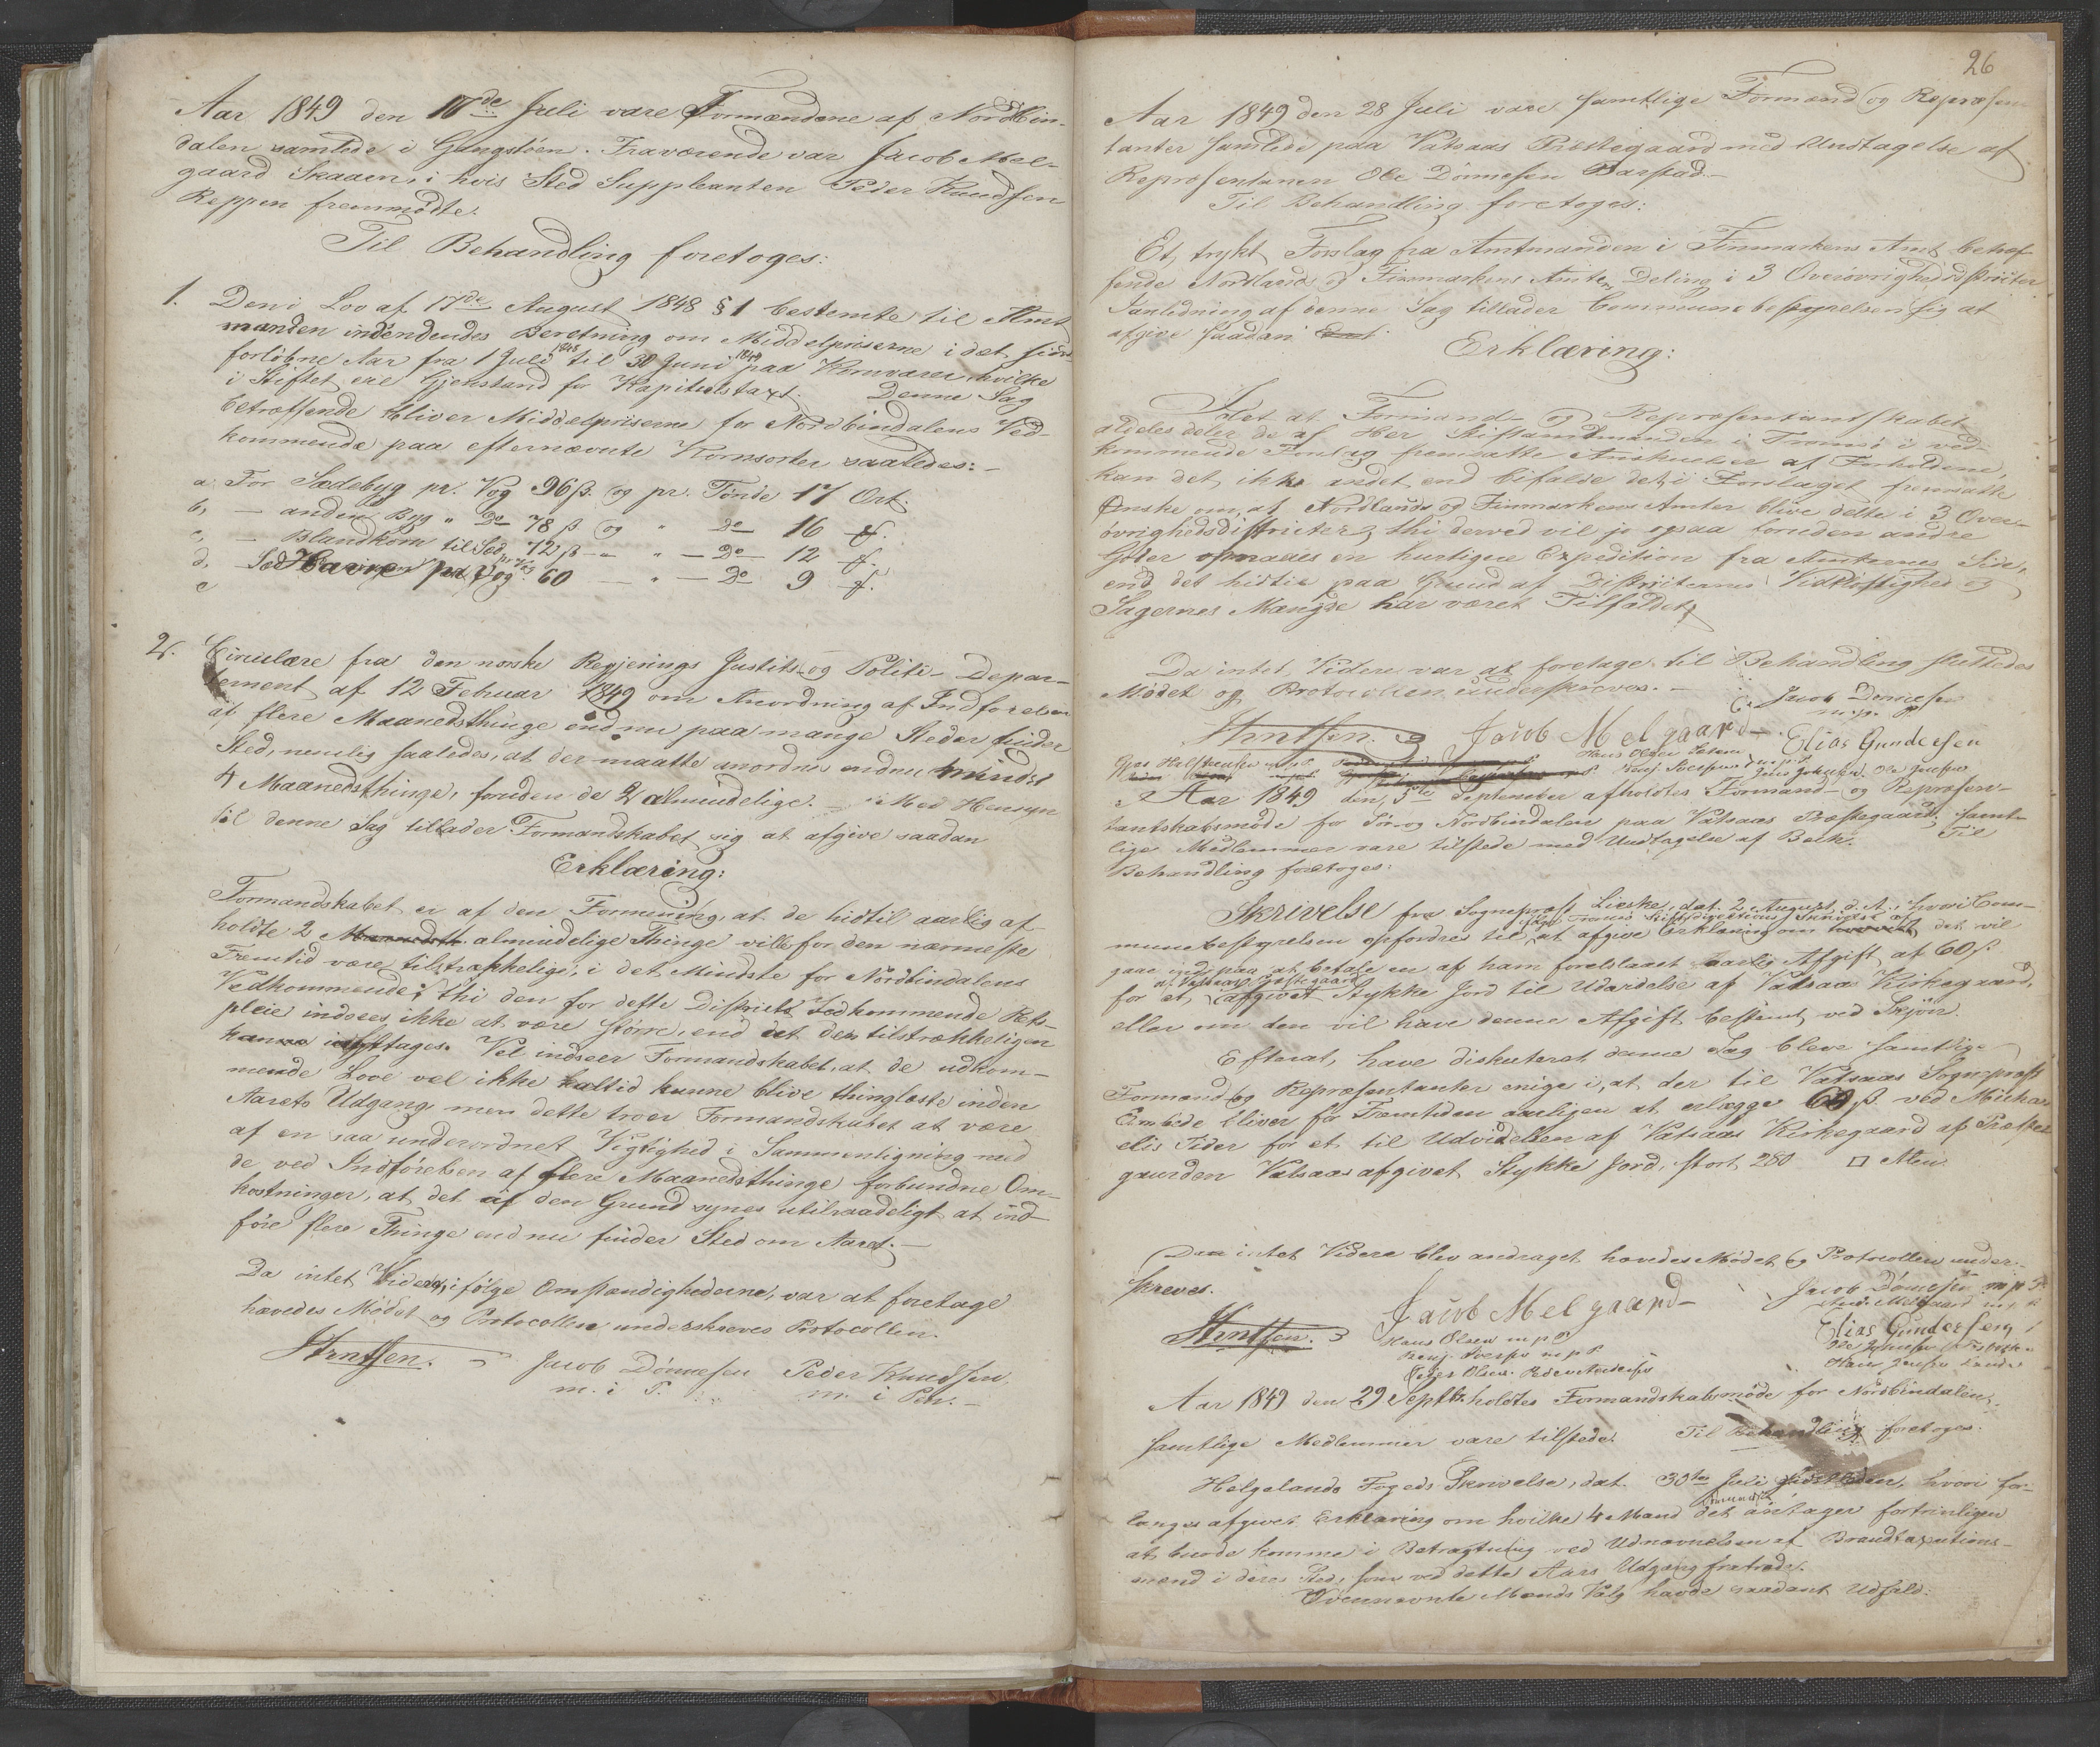 Aar 1849 den 17de Juli vare Formændene af Nordbin-
dalen samlede i Gangstøen. Fraværende var Jacob Mel-
gaard Skaaen, i hvis Sted Suppleanten Peder Knudsen
Reppen fremmødte.
Til Behandling foretoges:
1. Den i Lov af 17de August 1848 § 1 bestemte til Amt
manden indsendendes Beretning om Middelpriserne i det sidst
forløbne Aar fra 1 Juli 1848 til 30 Juni 1849 paa Kornvarer, hvilke
i Stiftet ere Gjenstand for Kapitelstaxt. Denne Sag
betræffende bliver Middelpriserne for Nordbindalens Ved-
kommende paa efternævnte Kornsorter saaledes:-
a For Sædebyg pr. Vog 96 ß. og pr. Tønde 17 Ort.
b, - anden Byg " Do 78 ß og " do 16 f.
c, - Blandkorn til Sæd 72 ß - " - Do 12 f.
d, Sæd Havre pr. Vog 60 - " - Do 9 f.
e
2. Circulære fra den norske Regjerings Justits- og Politi-Depar-
tement af 12 Februar 1849 om Anordning af Indførelsen
af flere Maanedsthinge end nu paa mange Steder finder
Sted, nemlig saaledes, at der maatte anordnes endnu mindst
4 Maanedsthinge, foruden de 2 almindelige. - Med Hensyn
til denne Sag tillader Formandskabet sig at afgive saadan
Erklæring:
Formandskabet er af den Formening, at de hidtil aarlig af-
holdte 2 almindelige Thinge ville for den nærmeste
Fremtid være tilstrækkelige, i det Mindste for Nordbindalens
Vedkommende; thi den for dette Districts Vedkommende Rets-
pleie indsees ikke at være større, end at den tilstrækkeligen
kan iagttages. Vel indseer Formandskabet, at de udkom-
mende Love vel ikke altid kunne blive thinglæste inden
Aarets Udgang, men dette troer Formandskabet at være
af en saa underordnet Vigtighed i Sammenligning med
de ved Indførelsen af flere Maanedsthinge forbundne Om-
kostninger, at det af den Grund synes utilraadeligt at ind-
føre flere Thinge end nu finder Sted om Aaret.-
Da intet Videre, ifølge Omstændighederne, var at foretage
hævedes Mødet og Protocollen underskreves Protocollen.
Arntsen. Jacob Dønnesen Peder Knudsen
m. i P. m. i Pen.-
26
Aar 1849 den 28 Juli vare samtlige Formænd og Repræsen
tanter samlede paa Vatsaas Præstegaard med Undtagelse af
Repræsentanen Ole Dønnesen Barstad.-
Til Behandling foretoges:
Et trykt Forslag fra Amtmanden i Finmarkens Amt betræf
fende Nordlands og Finmarkens Amters Deling i 3 Overøvrighedsdistricter
I Anledning af denne Sag tillader Communebestyrelsen sig at
afgive saadan
Erklæring:
Idet at Formand- og Repræsentantskabet
aldeles deler de af Her Stiftamtmanden i Tromsø i ved-
kommende Forslag fremsatte Anskuelser af Forholdene,
kan det ikke andet end bifalde det i Forslaget fremsatte
Ønske om, at Nordlands og Finmarkens Amter blive delte i 3 Over-
øvrighedsdistricter; thi derved vil jo ogsaa foruden andre
Goder opnaaes en hurtigere Expedition fra Amternes Side,
end det hidtil paa Grund af Districternes Vidtløftighed og
Sagernes Mængde har været Tilfældet.
Da intet Videre var at foretage til Behandling sluttedes
Mødet og Protocollen underskreves.-
Jacob Dønnesen
m. p. P.
Arntsen. Jacob Melgaard-. Elias Gundersen
Hans Olsen
Aar 1849 den 5te September afholdtes Formand- og Repræsen-
tantskabsmøde for Sør- og Nordbindalen paa Vatsaas Præstegaard; samt-
lige Medlemmer vare tilstede med Undtagelse af Beck. Til
Behandling foretoges:
Skrivelse fra Sognepræst Lieske, dat. 2 August d. A., hvori Com-
munebestyrelsen opfordres til, at afgive Erklæring om det vil
gaae ind paa at betale en af ham foreslaaet aarlig Afgift af 60 ß
for et, af Vatsaas Præstegaard afgivet Stykke Jord til Udvidelse af Vatsaas Kirkegaard,
eller om den vil have denne Afgift bestemt ved Skjøn.
Efterat have diskuteret denne Sag bleve samtlige
Formænd og Repræsentanter enige i, at der til Vatsaas Sognepræst
Embede bliver for Fremtiden aarligen at erlægge 60 ß ved Micha-
elis Tider for et til Udvidelsen af Vatsaas Kirkegaard af Præste-
gaarden Vatsaas afgivet Stykke Jord, stort 280 □ Alen.
Daa intet Videre blev andraget hævedes Mødet og Protocollen under-
skreves.
Jacob Melgaard- Jacob Dønnesen m p P
Arntsen. Hans Olsen m p P Elias Gundersen
Peder Olsen.
Aar 1849 den 29 Septbr. holdtes Formandskabsmøde for Nordbindalen.
samtlige Medlemmer vare tilstede. Til Behandling foretoges:
Helgelands Fogeds Skrivelse, dat. 30te Juli, hvori for-
langes afgivet Erklæring om hvilke 4 Mænd det antager fortrinligen
at burde komme i Betragtning ved Udnævnelsen af Brandtaxations-
mænd i deres Sted, som ved dette Aars Udgang fratræde.
Ovennævnte Mænds Valg havde saadant Udfald: